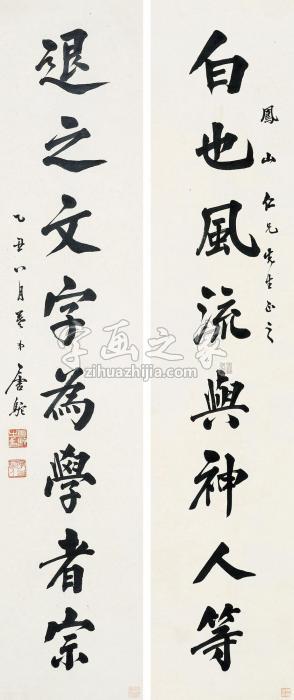 鳳山仁兄先生正之
白也風流與神人等
退之文字為學者宗
乙丑八月 唐駝
字画之家
zihuazhijia.com